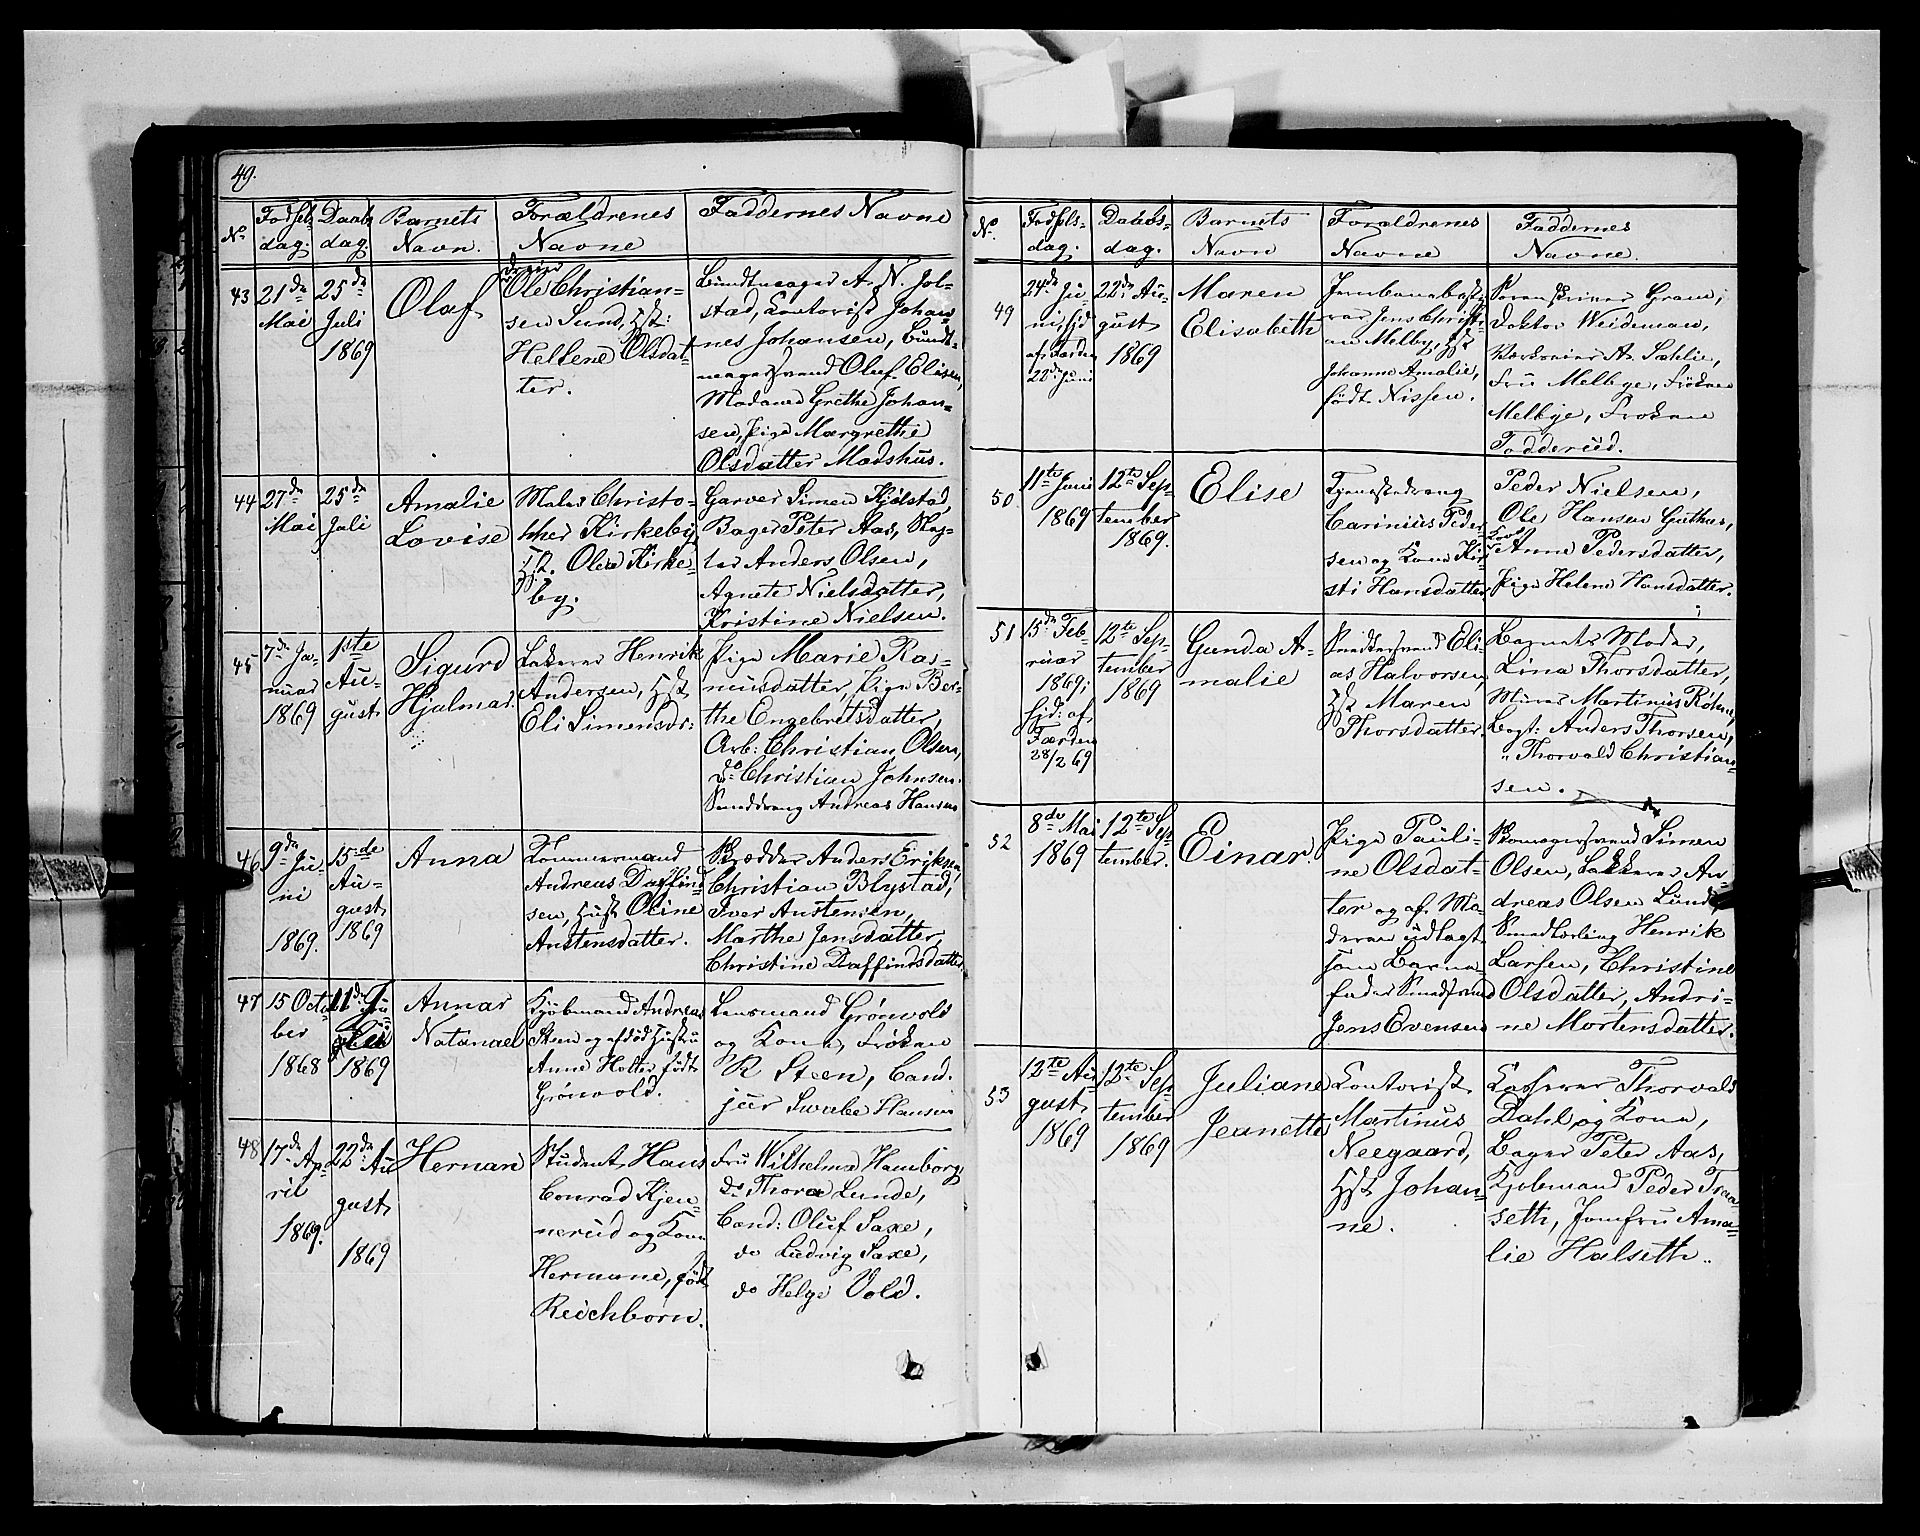 49.
No. Fødsels- Daabs- Barnets Forældrenes Faddernes Navne
dag. dag. Navn. Navne
43 21de Mai
25de Juli 1869
Olaf
Ole Christian-
sen Sund, Hst:
Hellene Olsdat-
ter.
Bundtmager A. N. Jol-
stad, Kontorist Johan-
nes Johansen, Bundt-
magersvend Oluf Elisen,
Madame Grethe Johan-
sen, Pige Margrethe
Olsdatter Madshus.
44 27de Mai
25de Juli
Amalie
Lovise
Maler Christo-
pher Kirkeby,
H. Olea Kirke-
by.
Garver Simen Kjølstad,
Bager Peter Aas, Slag-
ter Anders Olsen,
Agnete Nielsdatter,
Kristine Nielsen.
45 7de Ja-
nuar
1869
1ste
Au-
gust
Sigurd
Hjalmar.
Henrik
Andersen, Hst
Eli Simensdr:
Pige Marie Ras-
musdatter, Pige Ber-
the Engebretsdatter,
Arb: Christian Olsen,
do Christian Johnsen.
Smeddreng Andreas Hansen
46 9de Ju-
ni
1869.
15de
Au-
gust
1869
Anna
Tømmermand
Andreas Daffind-
sen, Hust Oline
Austensdatter.
Skrædder Anders Eriksen,
Christian Blystad,
Iver Austensen,
Marthe Jensdatter,
Christine Daffindsdatter
47 15 Octo-
ber
1868
11de Ju-
lii
1869
Annar
Natanael
Kjøbmand Andreas
Steen og afdød Hustru
Anne Holter, født
Grønvold.
Lensmand Grønvold
og Kone, Frøken
R Steen, Cand.
jur Swabe Hansen
48 17de Ap-
ril
1869.
22de Au-
gust
1869
Hernan
Student Hans
Conrad Kjen-
nerud og Kone
Hermane, født
Reichborn.
Fru Wilhelma Hamborg
do Thora Lunde,
Cand: Oluf Saxe,
do Ludvig Saxe,
do Helge Vold.
No. Fødsels- Daabs- Barnets Forældrenes Faddernes
dag. dag. Navn Navne Navne.
49 24de Ju-
ni, hjd
af Færden
22de Juni
22de Au-
gust
1869
Maren
Elisabeth
Jens Christi-
an Melby, Hst
Johanne Amalie,
født Nissen.
Sorenskriver Gram,
Doktor Weideman,
A. Sæhlie,
Fru Melbye, Frøken
Melbye, Frøken
Fodderud.
50 11te Juni
1869
12te Sep-
tember
1869.
Elise
Tjenestedreng
Carinius Peder-
sen og Kone Kir-
sti Hansdatter
Peder Nielsen,
Ole Hansen Guthus,
Anne Pedersdatter,
Pige Helene Hansdatter.
51 15de Feb-
ruar
1869;
hjd: af
Færden
28/2 69
12te Sep-
tember
1869
Gunda A-
malie
Smedsvend Eli-
as Halvorsen,
Hst Maren
Thorsdatter.
Barnets Moder,
Lina Thorsdatter,
Murer Martinus Røhne,
Logt: Anders Thorsen,
" Thorvald Christian-
sen.
52 8de Mai
1869
12te Sep-
tember.
Einar.
Pige Pauli-
ne Olsdat-
ter og af Mo-
deren udlagt
som Barne-
fader Smedsvend
Jens Evensen
Skomagersvend Simen
Olsen, An-
dreas Olsen Lund,
Smedlærling Henrik
Larsen, Christine
Olsdatter, Andri-
ne Mortensdatter.
53 12te Au-
gust
1869
12te Sep-
tember
1869
Juliane
Jeanette
Kontorist
Martinus
Neegaard,
Hst Johan-
ne.
Kasserer Thorvald
Dahl og Kone,
Bager Peter Aas,
Kjøbmand Peder Traa-
seth, Jomfru Ama-
lie Halseth.